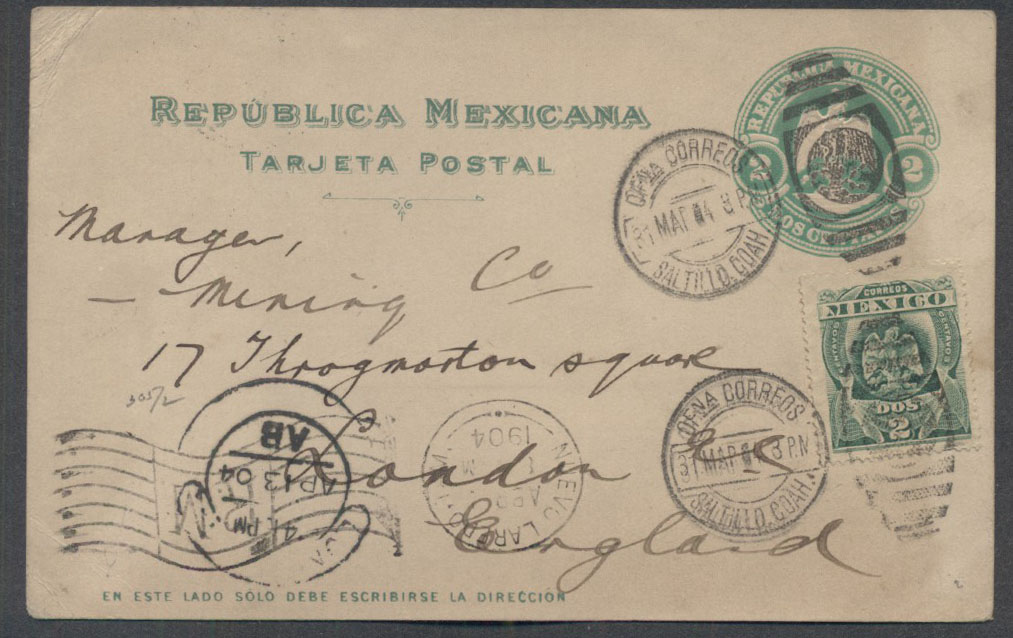 REPÚBLICA MEXICANA
TARJETA POSTAL
REPUBLICA MEXICANA
2 2
DOS CENTAVOS
OFNA CORREOS
31 MAR 04 3 PM
SALTILLO, COAH.
Manager,
— Mining Co
17 Throgmorton square
London E C
England
CORREOS
MEXICO
CENTAVOS CENTAVOS
DOS
2
OFNA CORREOS
31 MAR 04 3 PM
SALTILLO, COAH.
305/2
AB
AP 13 04
PM
NUEVO LAREDO
ABR
1904
EN ESTE LADO SÓLO DEBE ESCRIBIRSE LA DIRECCIÓN